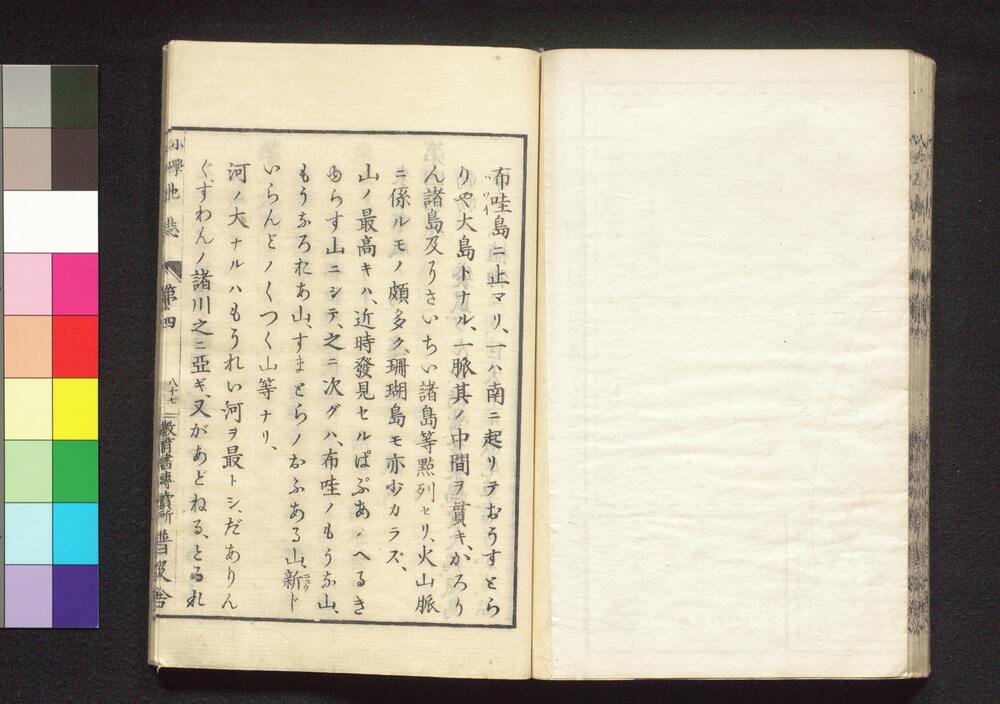 布哇島ニ止マリ、一ハ南ニ起リテおうすとら
りや大島トナル、一脈其ノ中間ヲ貫キ、かろり
ん諸島及りさいちい諸島等點列セリ、火山脈
ニ係ルモノ頗多ク、珊瑚島モ亦少カラズ、
山ノ最高キハ、近時發見セルぱぷあノへるき
ゆらす山ニシテ、之ニ次グハ、布哇ノもうな山、
もうなろあ山、すまとらノおふある山、新じ
いらんどノくつく山等ナリ、
河ノ大ナルハもうれい河ヲ最トシ、だありん
ぐ、すわんノ諸川之ニ亞ギ、又があどねる、とるれ
小學地誌 第四 八十七 教育書專賣所 普及舍